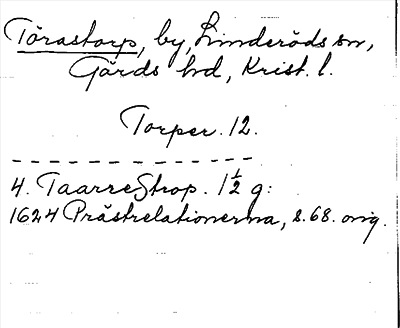 Törastorp, by, Linderöds sn,
Gärds hd, Krist. l.
Torper. 12.
4. TaarreStrop. 1½ g:
1624 Prästrelationerna, s. 68. orig.